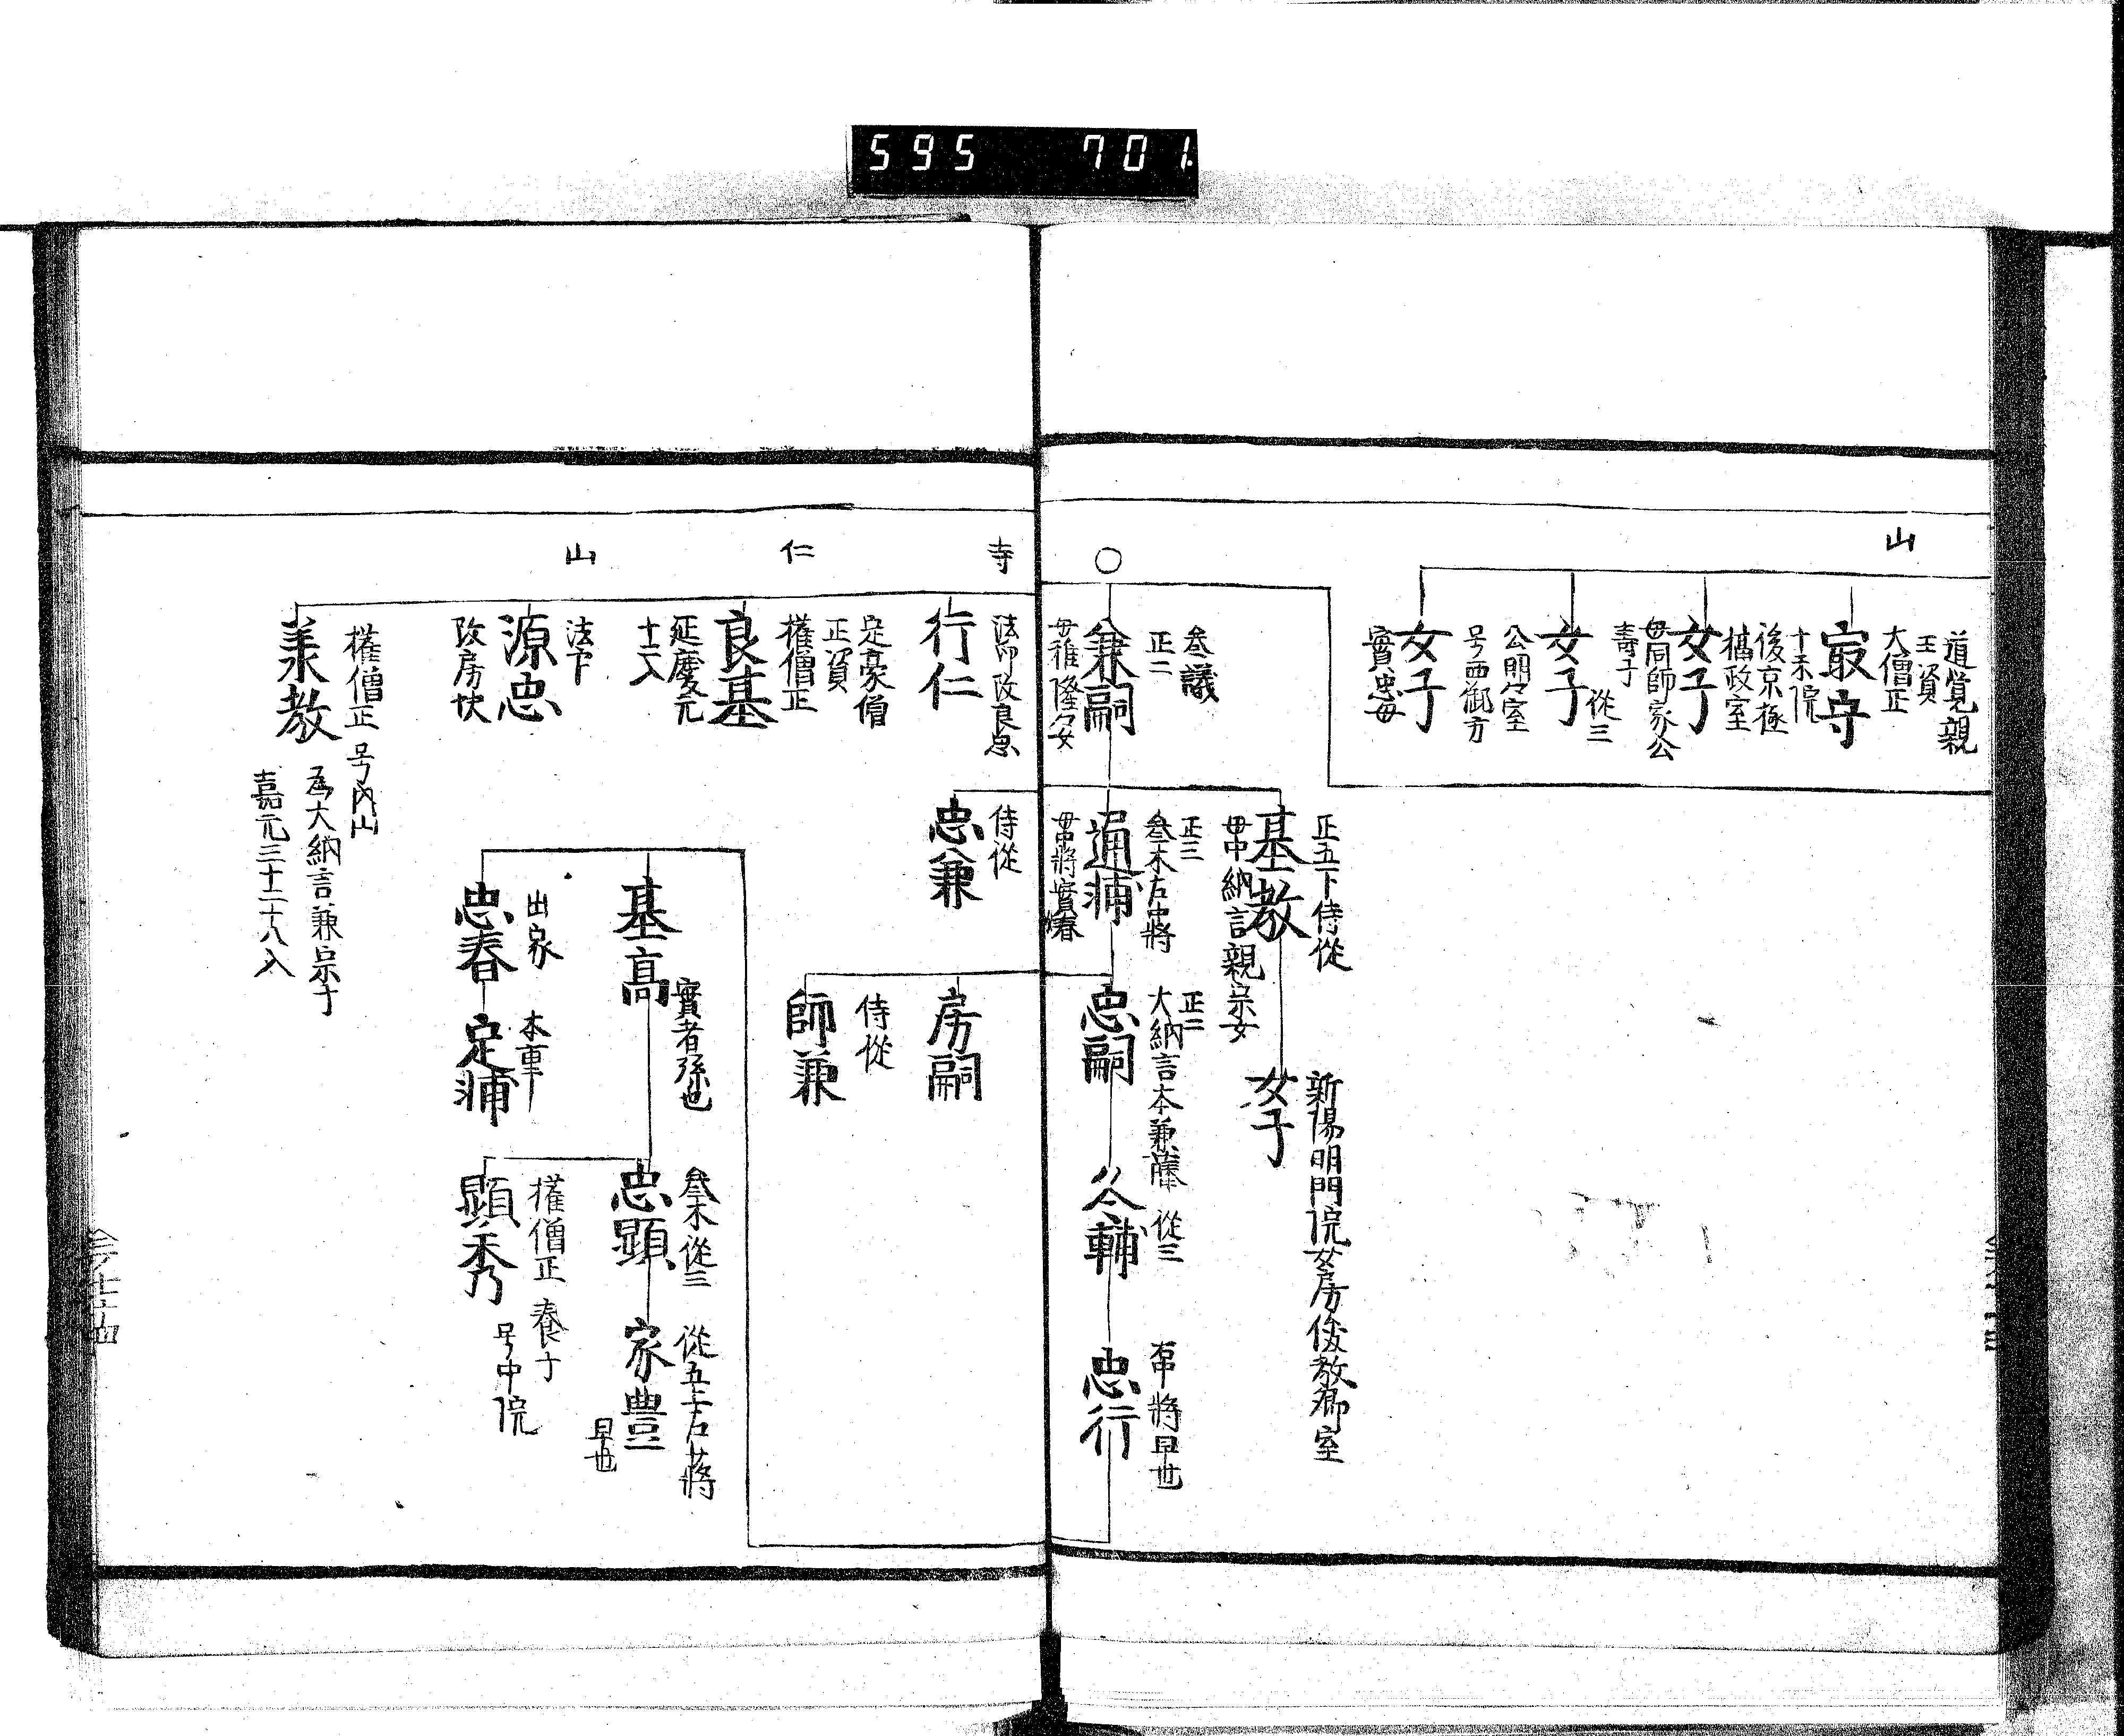 595 701.
山
道覚親
王資
大僧正
最守
十禾院
後京極
摂政室
女子
母同師家公
壽子
從三
女子
公明卿室
号西御方
女子
實忠母
○
叅議
正二
兼嗣
母雅隆卿女
正五下侍從
基教
母中納言親宗女
新陽明門院女房俊教卿室
女子
正三
叅木右中將
通輔
母中將實春女
正二
大納言本兼藤
忠嗣
從三
公輔
右中將早世
忠行
寺
法印改良恵
行仁
侍從
忠兼
房嗣
侍從
師兼
仁
定豪僧
正資
權僧正
良基
延慶元
十二入
實者孫也
基高
叅木從三
忠顕
從五上右少將
家豊
早世
山
法下
源忠
改房快
出家
忠春
本重
定輔
權僧正 養子
顕秀
号中院
權僧正 号内山
兼教
為大納言兼宗子
嘉元三十二十八入